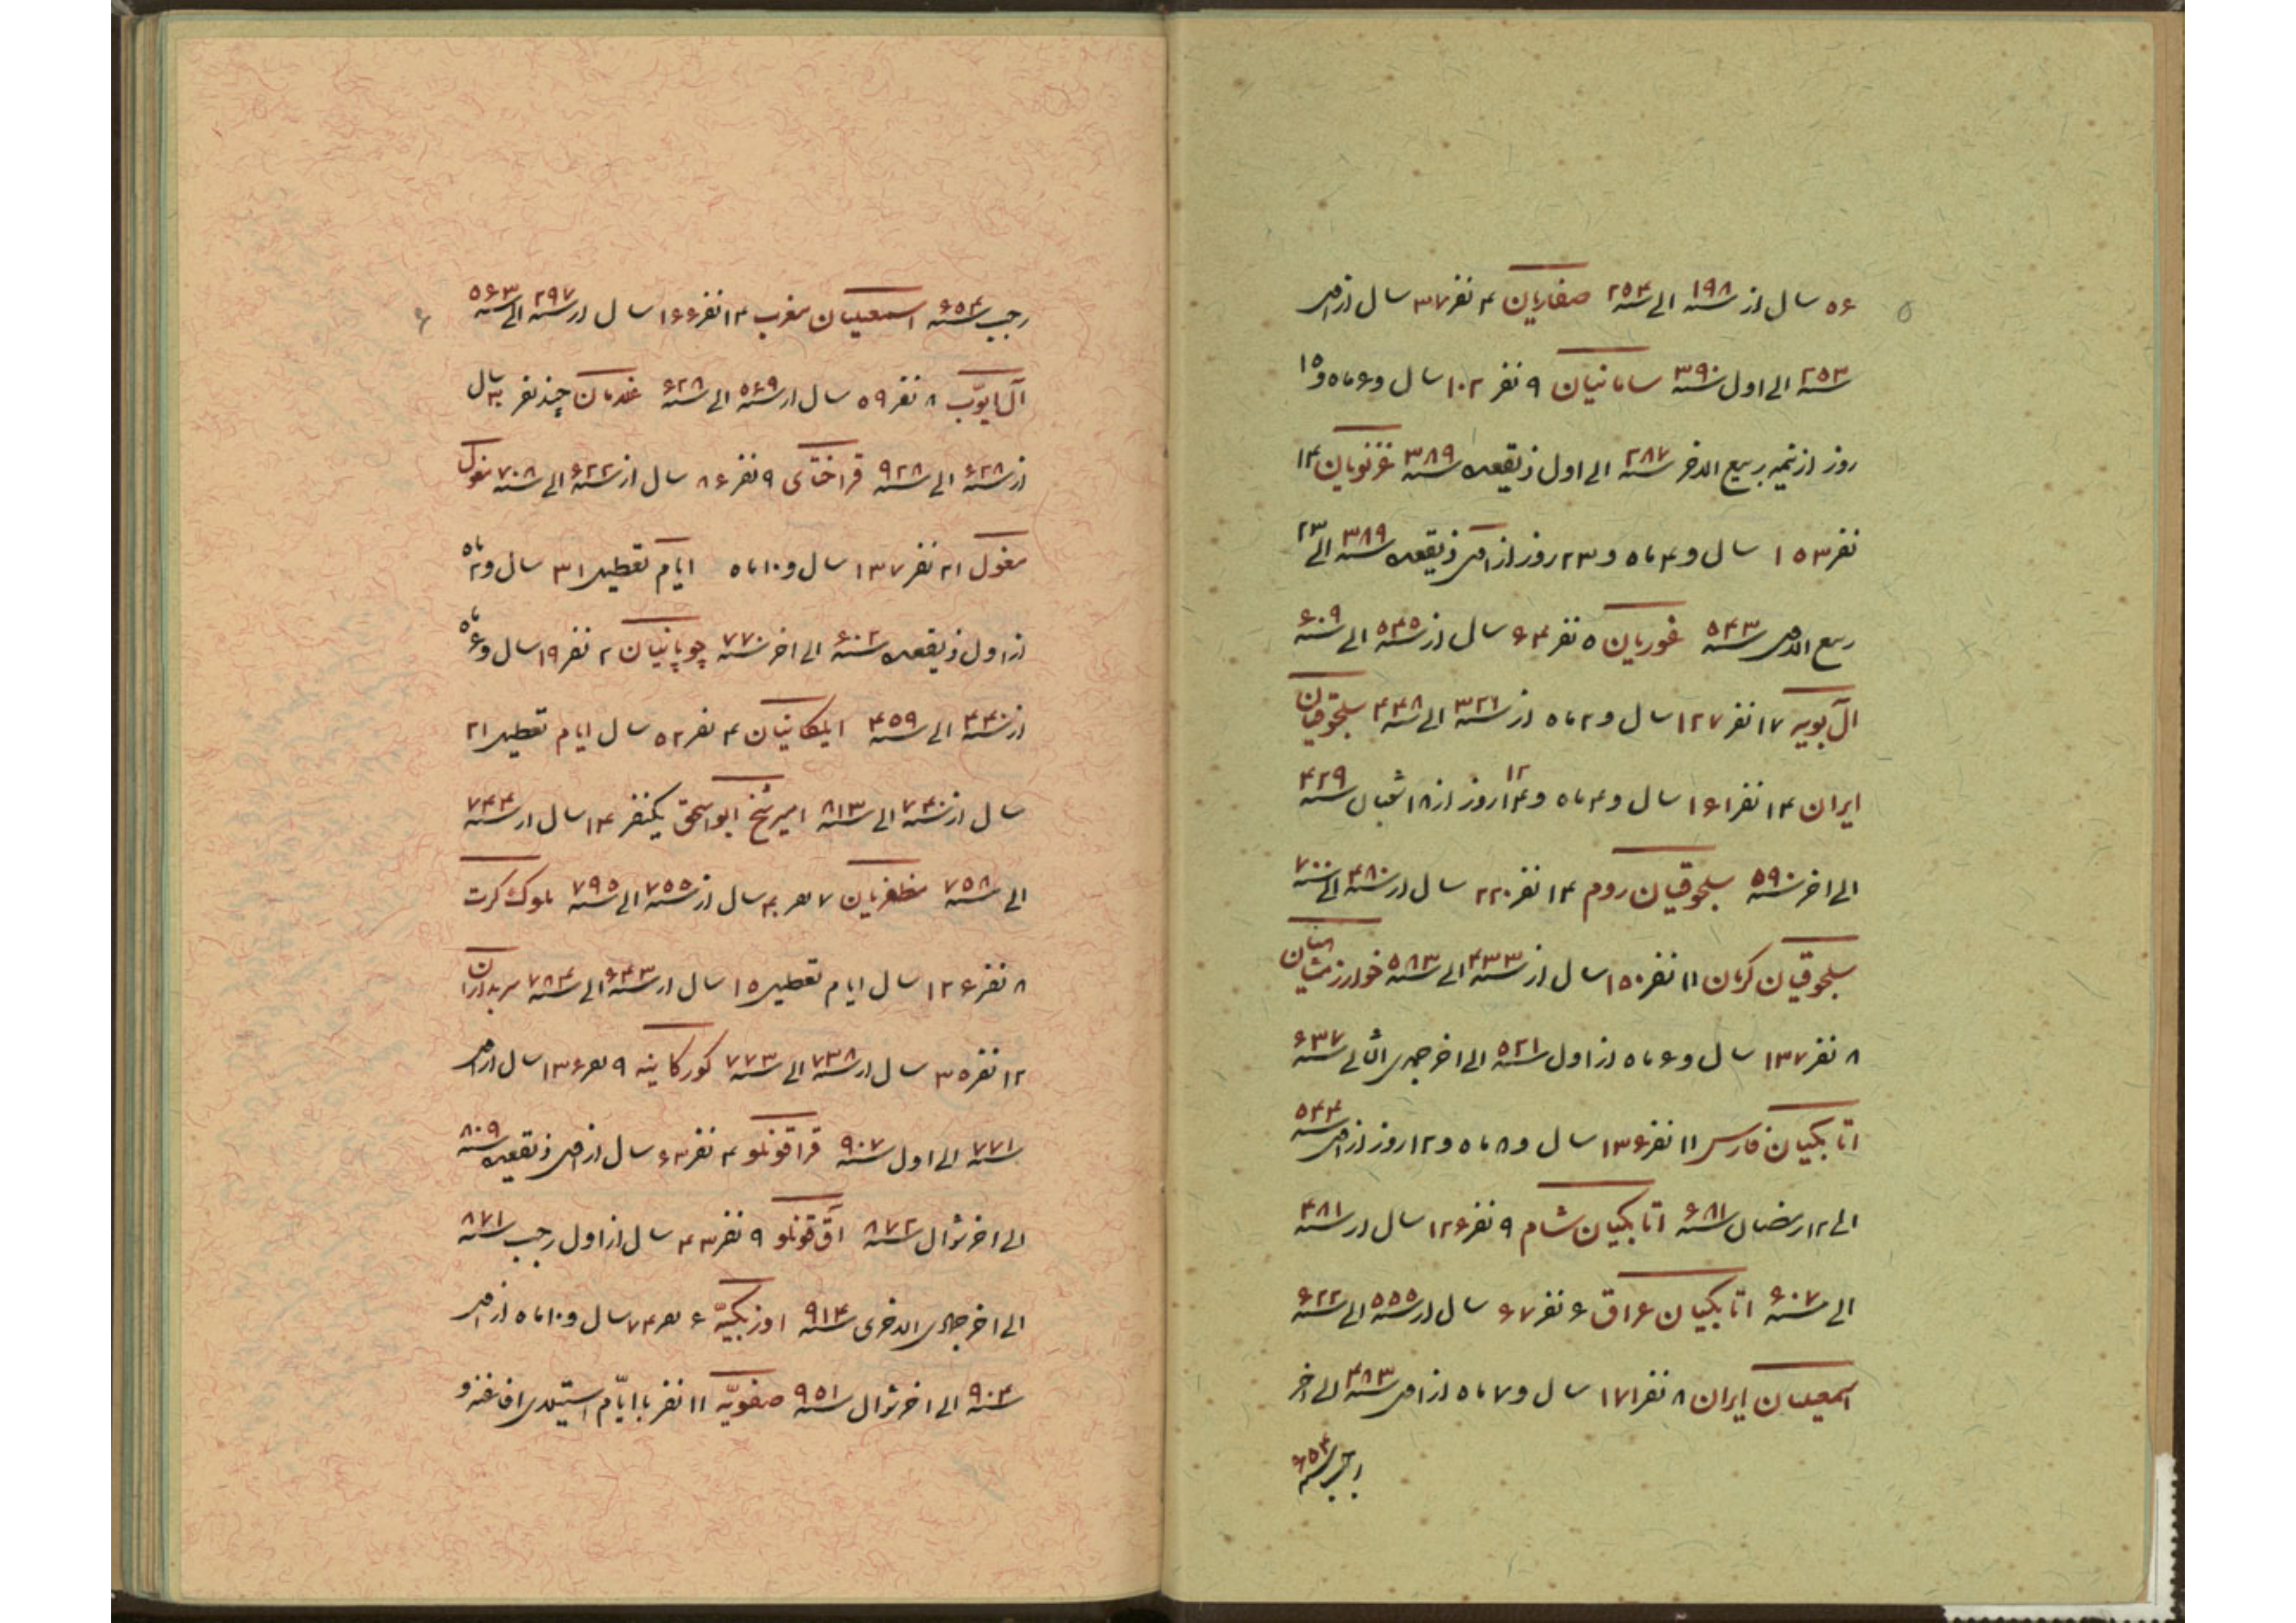 ۵
۵۶ سال از سنه ۱۹۸ الی سنه ۲۵۴ صفاریان ۴ نفر ۳۷ سال از اخر
سنه ۲۵۳ الی اول سنه ۳۹۰ سامانیان ۹ نفر ۱۰۲ سال و ۶ ماه و ۱۵
روز از نیمه ربیع الاخر سنه ۲۸۷ الی اول ذیقعده سنه ۳۸۹ غزنویان ۱۴
نفر ۱۵۳ سال و ۴ ماه و ۲۳ روز از اخر ذیقعده سنه ۳۸۹ الی ۲۳
ربیع الاخر سنه ۵۴۳ غوریان ۵ نفر ۶۴ سال از سنه ۵۴۵ الی سنه ۶۰۹
آل بویه ۱۷ نفر ۱۲۷ سال و ۲ ماه از سنه ۳۲۱ الی سنه ۴۴۸ سلجوقیان
ایران ۱۴ نفر ۱۶۱ سال و ۴ ماه و ۱۴ ۱۲ روز از ۱۸ شعبان سنه ۴۲۹
الی اخر سنه ۵۹۰ سلجوقیان روم ۱۴ نفر ۲۲۰ سال از سنه ۴۸۰ الی سنه ۷۰۰
سلجوقیان کرمان ۱۱ نفر ۱۵۰ سال از سنه ۴۳۳ الی سنه ۵۸۳ خوارزمشاهیان
۸ نفر ۱۳۷ سال و ۶ ماه از اول سنه ۵۲۱ الی اخر جمدی الثانی سنه ۶۳۷
اتابکیان فارس ۱۱ نفر ۱۳۶ سال و ۸ ماه و ۱۲ روز از اخر سنه ۵۴۴
الی ۱۲ رمضان سنه ۶۸۱ اتابکیان شام ۹ نفر ۱۲۶ سال از سنه ۴۸۱
الی سنه ۶۰۷ اتابکیان عراق ۶ نفر ۶۷ سال از سنه ۵۵۵ الی سنه ۶۲۲
اسمعیلیان ایران ۸ نفر ۱۷۱ سال و ۷ ماه از اخر سنه ۴۸۳ الی اخر
رجب سنه ۶۵۴
۶
رجب سنه ۶۵۴ اسمعیلیان مغرب ۱۴ نفر ۱۶۶ سال از سنه ۲۹۷ الی سنه ۵۶۳
آل ایوّب ۸ نفر ۵۹ سال از سنه ۵۶۹ الی سنه ۶۲۸ غلامان چند نفر سال
از سنه ۶۲۸ الی سنه ۹۲۸ قراختای ۹ نفر ۸۶ سال از سنه ۶۲۲ الی سنه ۷۰۸ مغول
مغول ۲۱ نفر ۱۳۷ سال و ۱۰ ماه ایام تعطیل ۳۱ سال و ۲ ماه
از اول ذیقعده سنه ۶۰۲ الی اخر سنه ۷۷۰ چوپانیان ۲ نفر ۱۹ سال و ۶ ماه
از سنه ۴۴۰ الی سنه ۴۵۹ ایلکانیان ۴ نفر ۵۲ سال ایام تعطیل ۲۱
سال از سنه ۷۴۰ الی سنه ۸۱۳ امیر شیخ ابواسحق یکنفر ۱۴ سال از سنه ۷۴۴
الی سنه ۷۵۸ مظفریان ۷ نفر ۴۰ سال از سنه ۷۵۵ الی سنه ۷۹۵ ملوک کرت
۸ نفر ۱۲۶ سال ایام تعطیل ۱۵ سال از سنه ۶۴۳ الی سنه ۷۸۴ سربداران
۱۲ نفر ۳۵ سال از سنه ۷۳۸ الی سنه ۷۷۳ کورکانیه ۹ نفر ۱۳۶ سال از اخر
سنه ۷۷۱ الی اول سنه ۹۰۷ قراقونلو ۴ نفر ۶۳ سال از اخر ذیقعده سنه ۸۰۹
الی اخر شوال سنه ۸۷۲ آق قونلو ۹ نفر ۴۳ سال از اول رجب سنه ۸۷۱
الی اخر جمادی الاخری سنه ۹۱۴ اوزبکیّه ۶ نفر ۷۴ سال و ۱۰ ماه از اخر
سنه ۹۰۴ الی اخر شوال سنه ۹۵۱ صفویّه ۱۱ نفر با ایّام استیلای افاغنه و